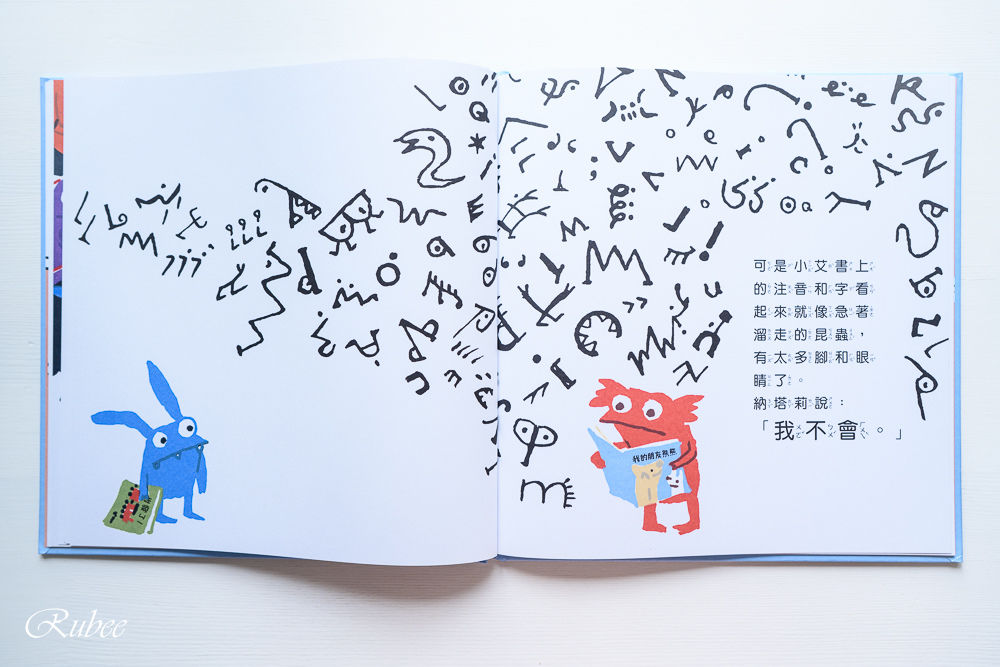 可是小艾書上
的注音和字看
起來就像急著
溜走的昆蟲，
有太多腳和眼
睛了。
納塔莉說：
「我不會。」
我的朋友熊熊
Rubee